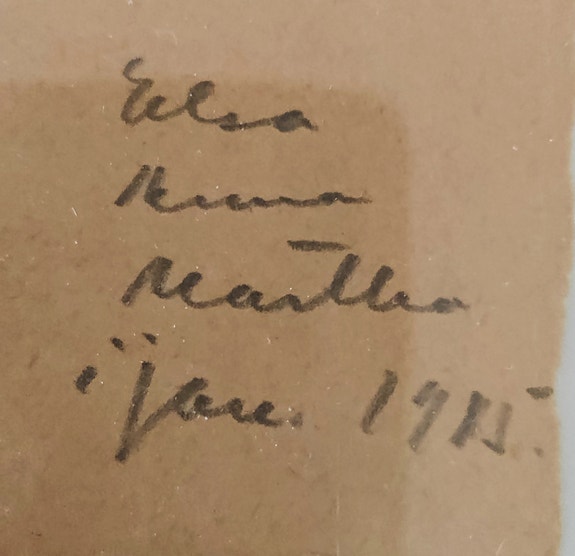 Elsa
Anna
Martha
i Jan. 1915.